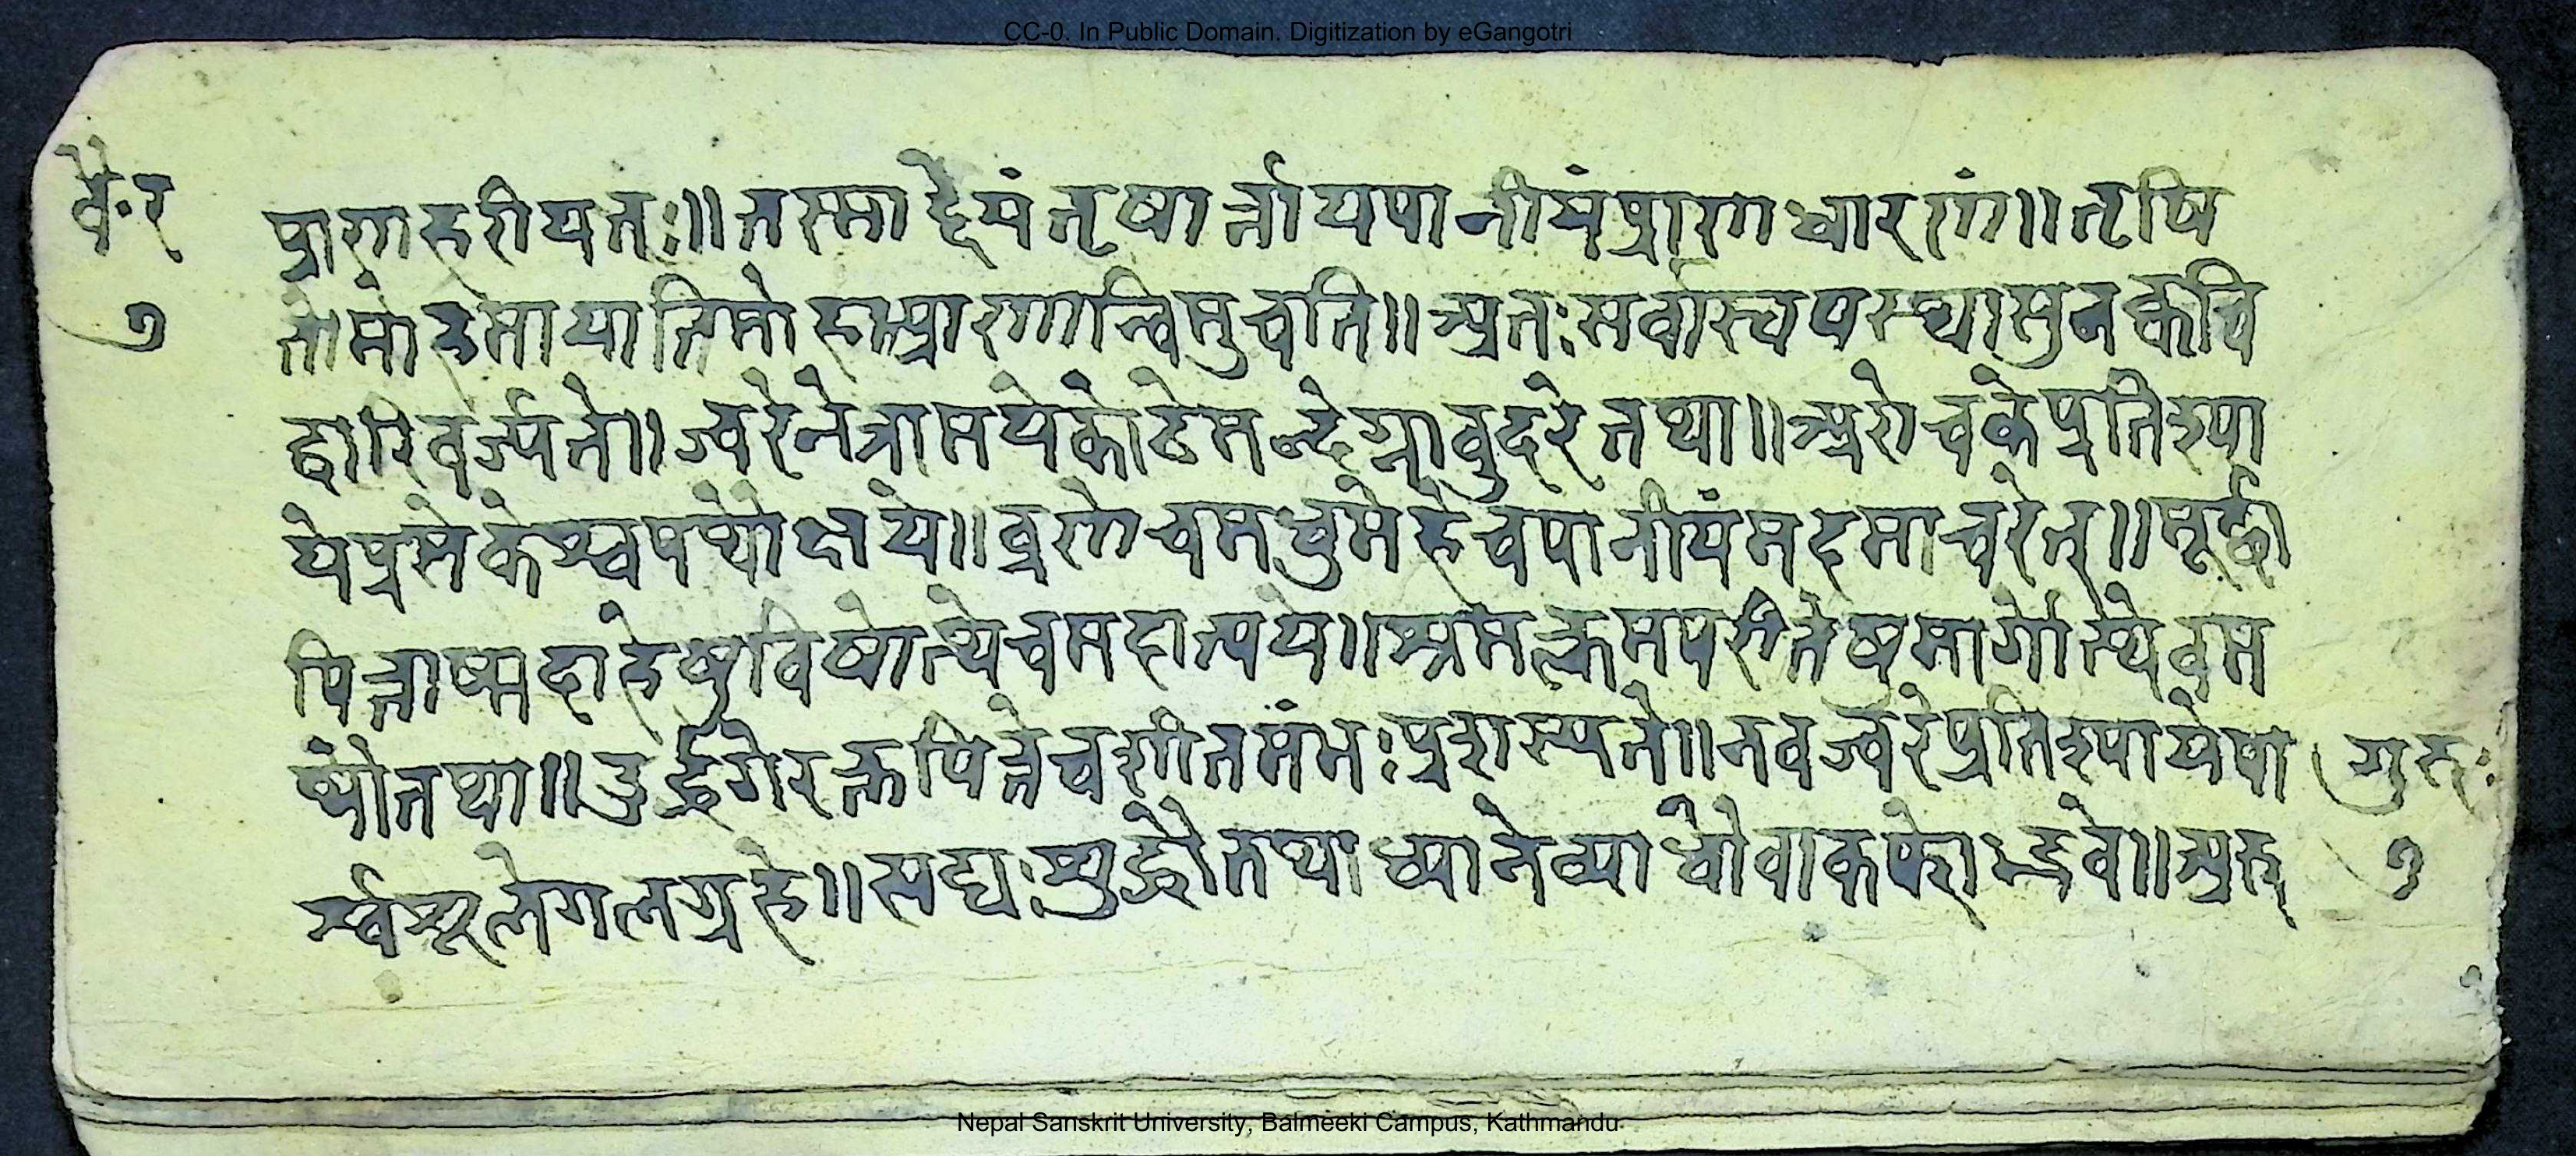 CC-0. In Public Domain. Digitization by eGangotri
वै.र
प्राणहरीयतः॥तस्माद्देयंतृषार्त्तायपानीयंप्राणधारणं॥तृषि
७
तोमोहमायातिमोहात्प्राणान्विमुचति॥अतःसर्वास्ववस्थासुनक्वचि
द्वारिवर्ज्यते॥ज्वरेनेत्रामयेकोठेमन्देग्नावुदरेतथा॥अरोचकेप्रतिश्या
येप्रसेकेश्वपथौक्षये॥व्रणेचमधुमेहेचपानीयंमदमाचरेत्॥मूर्छा
पित्तोष्मदाहेषुविषोत्थेचमदात्यये॥श्रमत्क्लमपरीतेषमार्गोस्थेवम
थौतथा॥उर्द्ध्वगेरक्तपित्तेचशीतमंभःप्रशस्यते॥नवज्वरेप्रतिश्यायेपा
गुरूः
र्श्वशूलेगलग्रहे॥सद्यःशुद्धौतथाध्मानेव्याधौवाकफोद्भवे॥अरु
७
Nepal Sanskrit University, Balmeeki Campus, Kathmandu